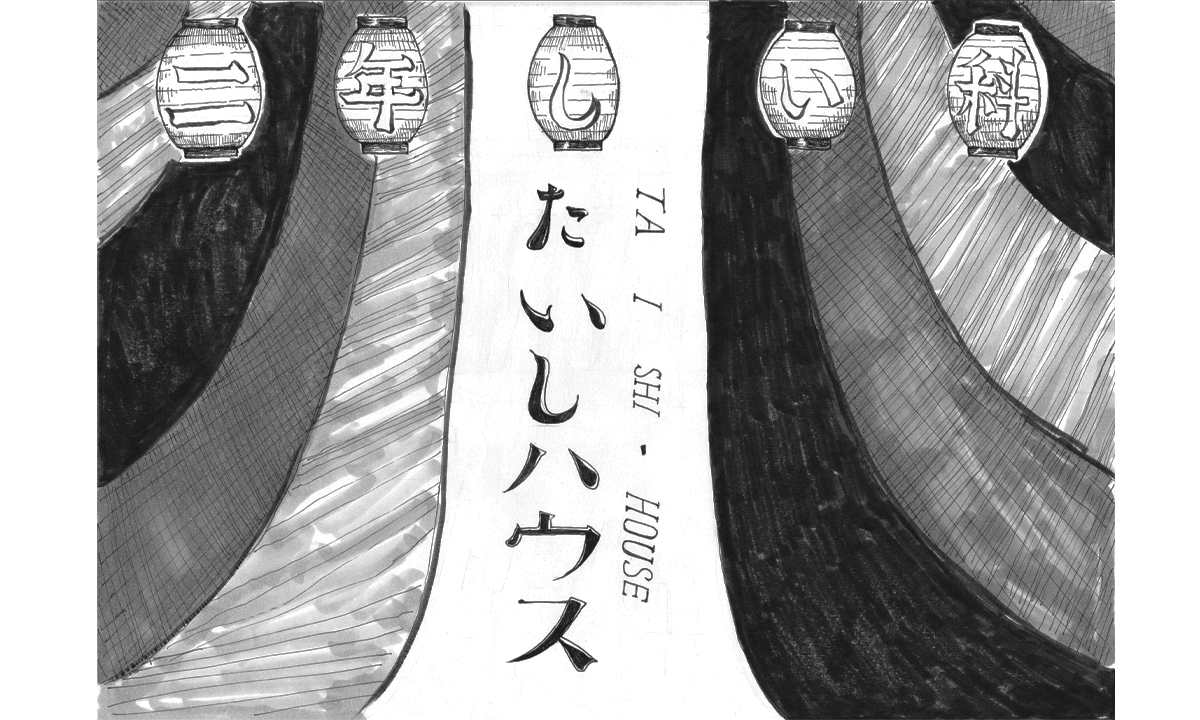 三年しい科
たいしハウス
TA I SHI・HOUSE